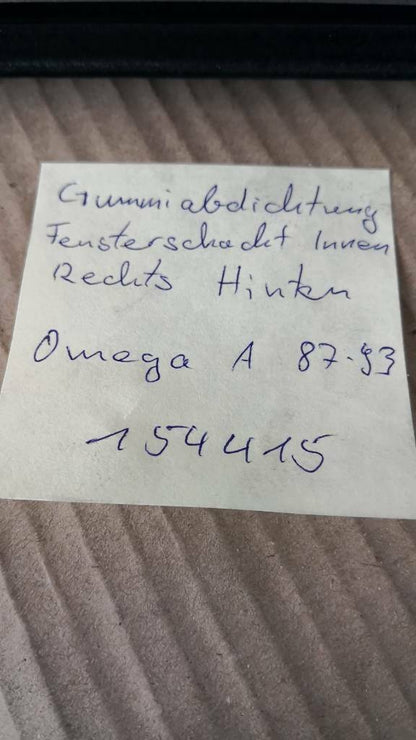 Gummiabdichtung
Fensterschacht Innen
Rechts Hinten
Omega A 87-93
154415